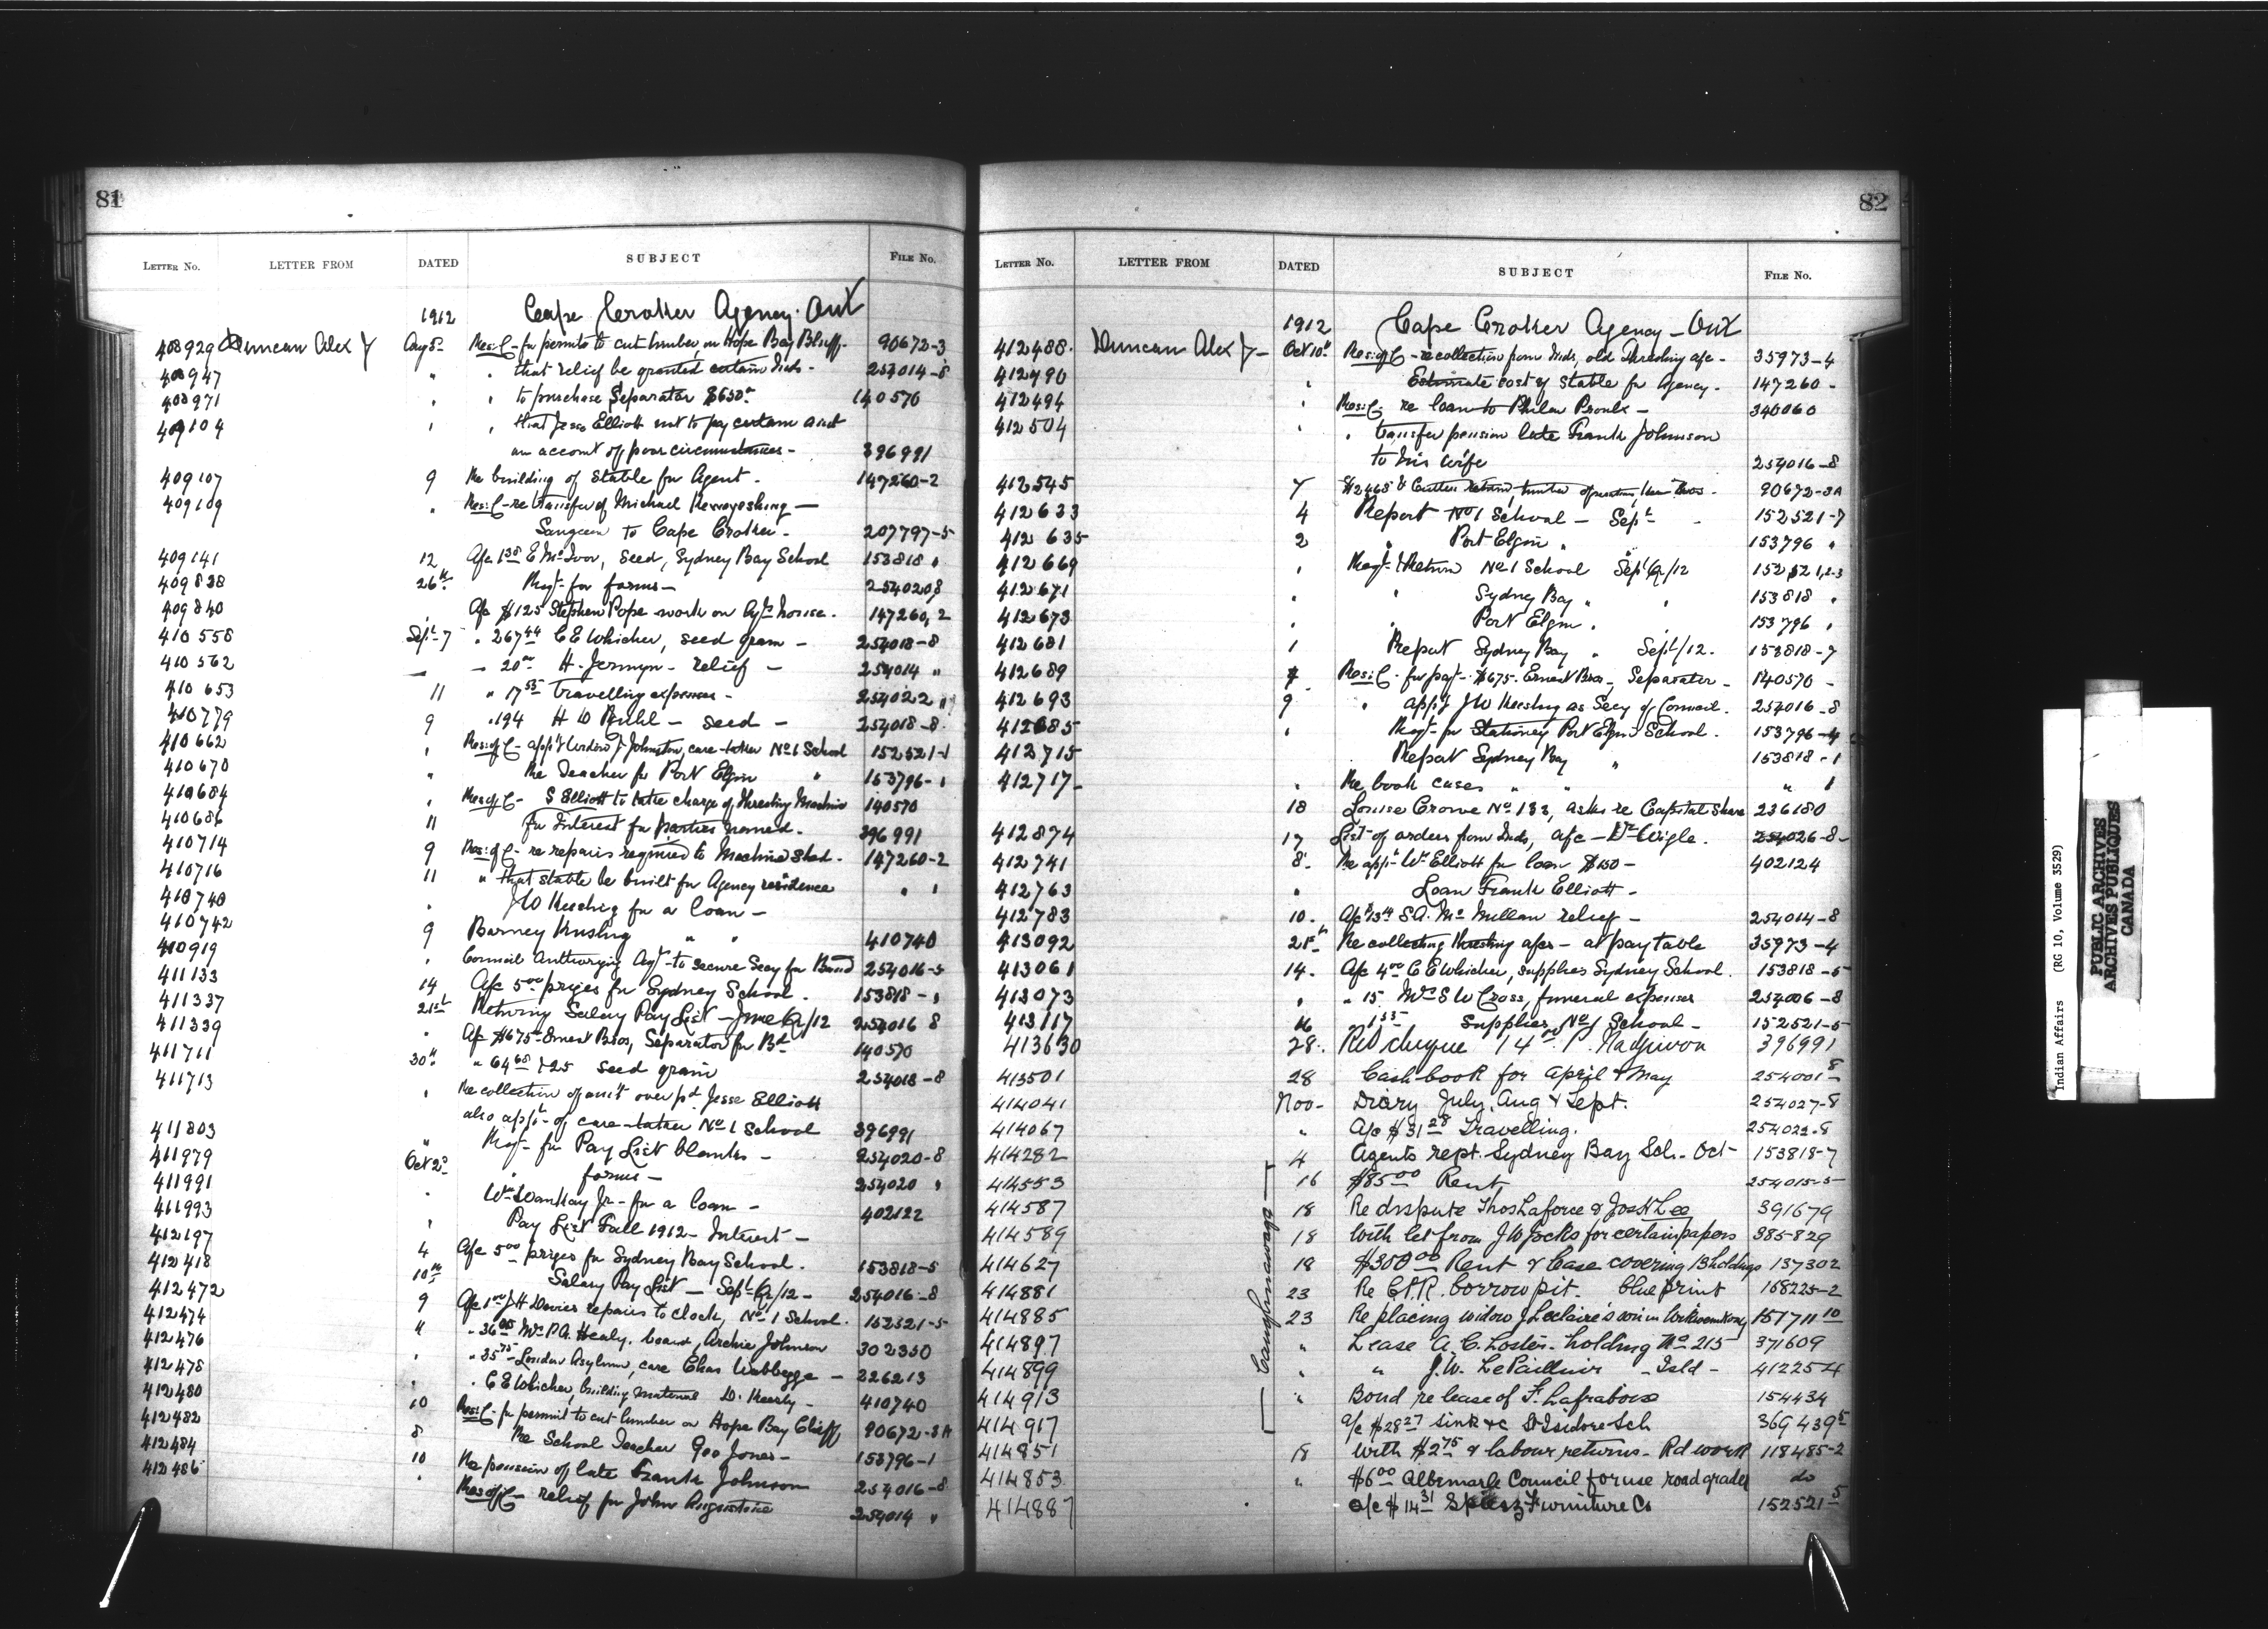 81
LETTER No. LETTER FROM DATED SUBJECT FILE No.
1912 Cape Croker Agency. Ont
408929 Duncan Alex J Aug 5 Res: C - for permits to cut timber, on Hope Bay Bluff. 90672-3
408947 " " that relief be granted certain Inds - 254014-8
408971 " " to purchase Separator $650 140570
409104 " " that Jesse Elliott not to pay certain amt
on account of poor circumstances - 396991
409107 9 Re building of Stable for Agent. 147260-2
409109 " Res: C - re transfer of Michael
Saugeen to Cape Croker. 207797-5
409141 12 A/c 1.38 E McIvor, Seed, Sydney Bay School 153818 "
409838 26th Reqt for forms - 254020,8
409840 " A/c $125 Stephen Pope work on Agts house. 147260,2
410558 Sept 7 " 267.44 C E Whicher, seed grain - 254018-8
410562 - 20.00 H. Jermyn - relief - 254014 "
410653 11 " 17.55 travelling expenses - 254022 "
410779 9 " 194 H W Ruhl - seed - 254018-8
410662 " Res: of C - appt of J. Johnston, care-taker No 1 School 152521-1
410670 " Re Teacher for Port Elgin " 153796-1
410684 " Res of C - S Elliott to take charge of Threshing Machine 140570
410686 11 for Interest for parties named. 396991
410714 9 Res: of C - re repairs required to Machine Shed. 147260-2
410716 11 " that stable be built for Agency residence " "
410740 " J W Keeshig for a loan -
410742 9 Barney Krusling " " 410740
410919 " Council Authorizing Agt to secure Secy for Band 254016-5
411133 14 A/c 5.00 prizes for Sydney School. 153818 - "
411337 21st Returning Salary Pay List - June Qr/12 254016 8
411339 " A/c $675 Ernest Bros, Separator for Bd 140570
411711 30th " 64.68 & 25 seed grain 254018-8
411713 " Re collection of amt over pd Jesse Elliott
also appt of care-taker No 1 School 396991
411803 " Reqt for Pay List blanks - 254020-8
411979 Oct 2 " forms - 254020 "
411991 " Wm Wankay Jr - for a loan - 402122
411993 " Pay List Fall 1912 - Interest -
412197 4 A/c 5.00 prizes for Sydney Bay School. 153818-5
412418 10th Salary Pay List - Sept Qr/12 - 254016-8
412472 9 A/c 1.00 J H Davies repairs to clock, No 1 School. 152521-5
412474 11 " 36.00 Mrs P A. Healy, board, Archie Johnson 302350
412476 " " 35.75 London Asylum, care Chas Wabbegge - 226213
412478 " " C E Whicher, building material D. Keesly - 410740
412480 10 Res: C - for permit to cut timber on Hope Bay Cliff, 90672-3A
412482 8 Re School Teacher Geo Jones - 153796-1
412484 10 Re pension of late Frank Johnson 254016-8
412486 " Res of C - relief for John Augustine 254014 "
82
LETTER No. LETTER FROM DATED SUBJECT FILE No.
1912 Cape Croker Agency - Ont
412488. Duncan Alex J - Oct 10th Res: of C - re collection from Inds, old Threshing a/c - 35973-4
412490 " Estimate cost of stable for Agency - 147260 -
412494 " Res: C - re loan to Philem Proulx - 340060
412504 " " transfer pension late Frank Johnson
to his wife 254016-8
412545 7 $24.68 & 90672-3A
412633 4 Report No 1 School - Sept - 152521-7
412635 2 " Port Elgin " 153796 "
412669 " Reqt & Return No 1 School Sept Qr/12 152521,2-3
412671 " " Sydney Bay " " 153818 "
412673 " " Port Elgin " 153796 "
412681 1 Report Sydney Bay " Sept/12. 153818-7
412689 7 Res: C - for payt - $675. Ernest Bros -, Separator - 140570 -
412693 9 " appt J W Keeshig as Secy of Council. 254016-8
412685 " Reqt for Stationery Port Elgin School. 153796-4
412715 Report Sydney Bay " 153818-1
412717 " Re book cases " " " 1
18 Louise Crowe No 133, asks re Capital Share 236180
412874 17 List of orders from Inds, a/c - Dr Wigle. 254026-8
412741 8. Re appn Wm Elliott for loan $150 - 402124
412763 " Loan Frank Elliott -
412783 10. A/c $13.00 S A. McMillan relief - 254014-8
413092 21st Re collecting threshing a/cs - at pay table 35973-4
413061 14. A/c 4.00 C E Whicher, supplies Sydney School. 153818-5
413073 " " 15. Mrs S W Cross, funeral expenses 254006-8
413117 16 " 1.55 Supplies, No 1 School - 152521-5
413630 28. Retd cheque 14.00 P. Nadjiwon 396991
413501 28 Cash-book for April & May 254001-8
414041 Nov - Diary July, Aug & Sept. 254027-8
414067 " A/c $31.28 Travelling. 254022-8
414282 4 Agents rept. Sydney Bay Sch - Oct - 153818-7
Caughnawaga
414553 16 $85.00 Rent 254015-5
414587 18 Re dispute Thos Laforce & Jos K Lee 391679
414589 18 With let from J W Jocks for certain papers 385829
414627 18 $300.00 Rent & lease covering 13 holdings 137302
414881 23 Re C.P.R. borrow pit. blue print 168225-2
414885 23 Re placing widow J Leclaire's son in Wikwemikong 157711-10
414897 " Lease A. C. Loster - holding No 215 371609
414899 " " J. W. LePailleur - Isld - 412254
414913 " Bond re lease of F. Lafraboise 154434
414917 a/c $28.27 sink &c St Isidore Sch 369439-5
414851 18 With $2.75 & labour returns - Rd work 118485-2
414853 " $6.00 Albemarle Council for use road grader do
414887 a/c $14.31 Furniture Co 152521-5
Indian Affairs (RG 10, Volume 3529)
PUBLIC ARCHIVES
ARCHIVES PUBLIQUES
CANADA